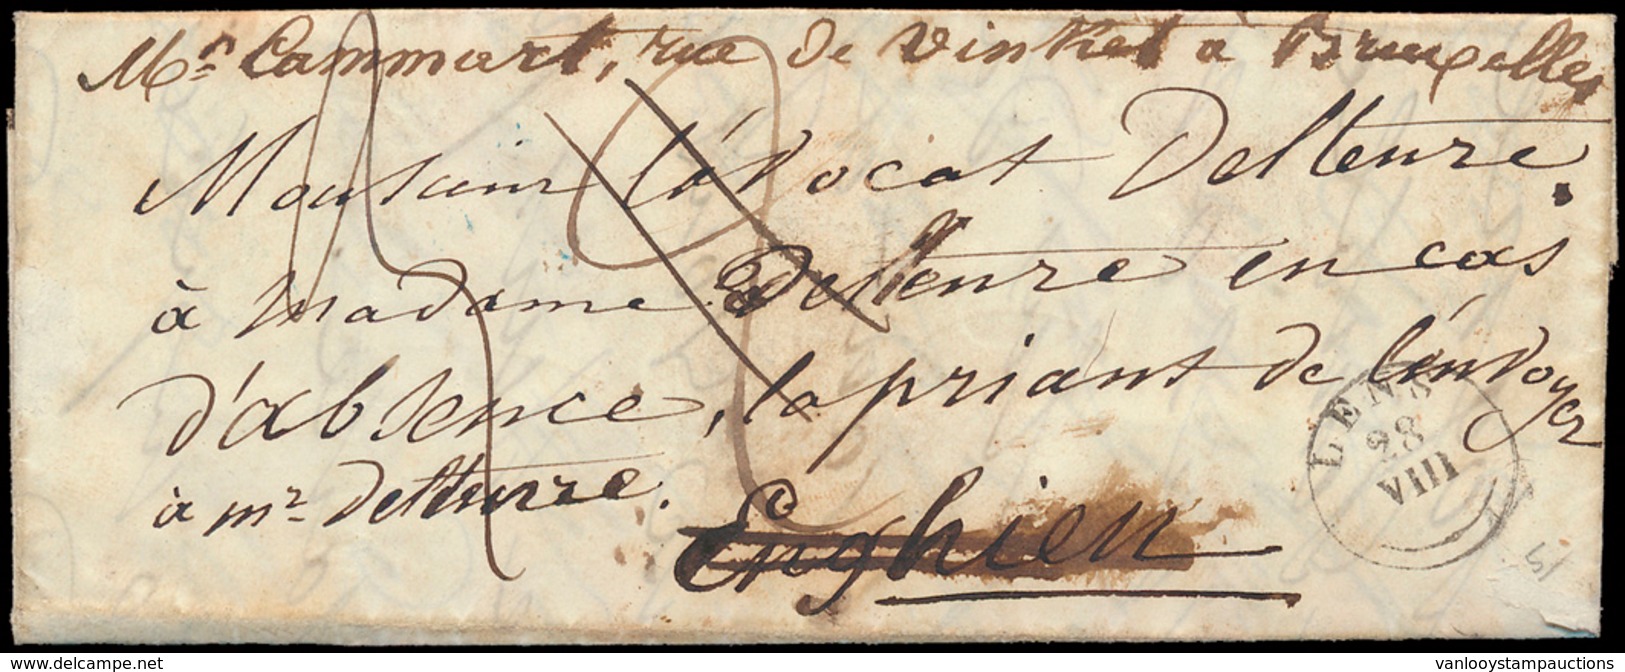 Mr. Cammart, rue de Vinket à Bruxelles
Monsieur l'avocat Delteure.
à madame Delteure en cas
d'absence, la priant de l'envoyer
à mr. Delteure.
Enghien
LENS
28
VIII
vanlooystampauctions.com